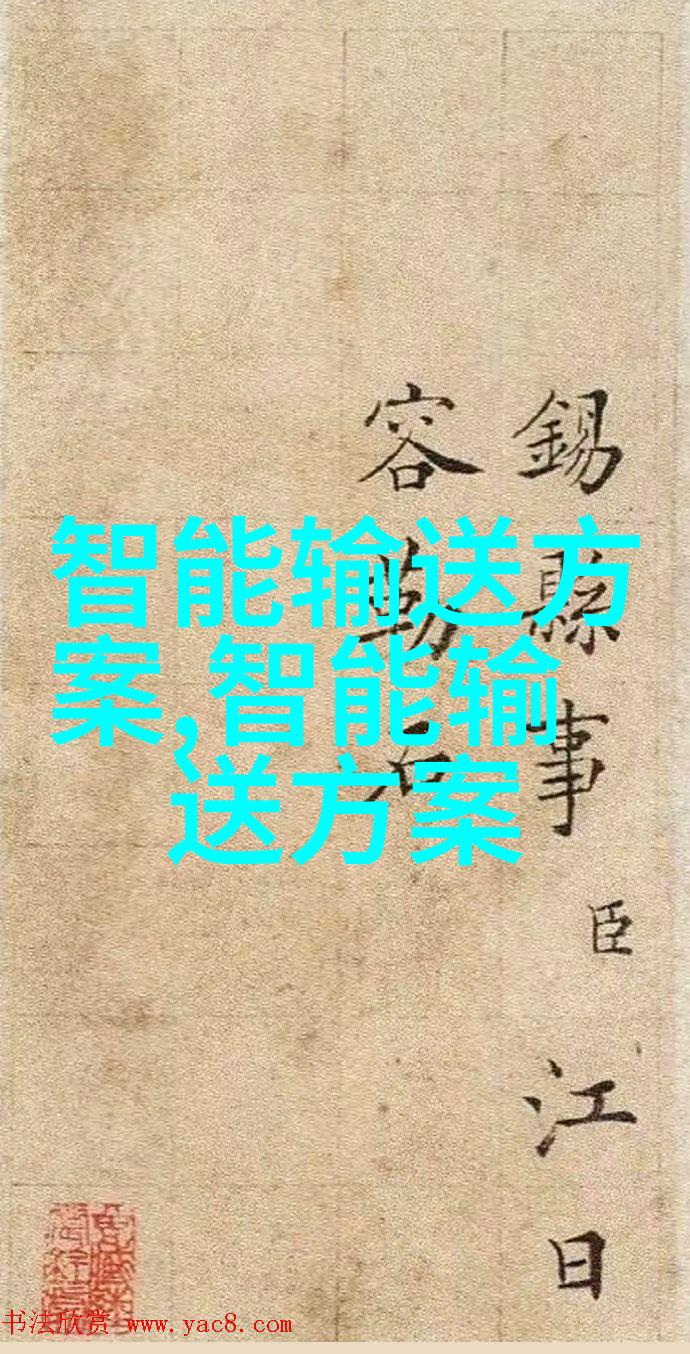 錫縣事臣江日
容勒石
智能输送方
案,智能输
送方案
书法欣赏 www.yac8.com